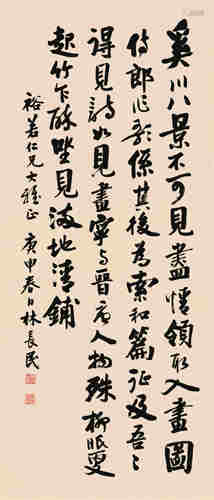 奚川八景不可见盡情領取入畫圖
侍郎作歌係其後為索和篇征及吾吾
得見詩如見畫寧与晋唐人物殊柳眠更
起竹乍酥坐見滿地清鋪
裕若仁兄大雅正 庚申春日林長民